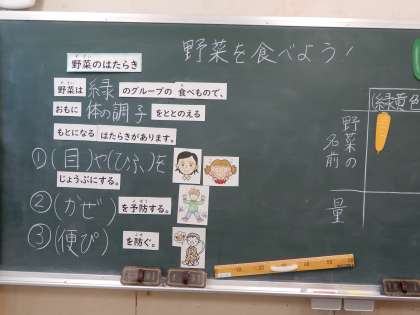 野菜を食べよう!
野菜のはたらき
野菜は 緑 のグループの 食べもので、
おもに 体の調子 をととのえる
もとになる はたらきがあります。
①(目)や(ひふ)を
じょうぶにする。
②(かぜ)を予防する。
③(便ぴ)を防ぐ。
(緑黄色
野菜の名前
量